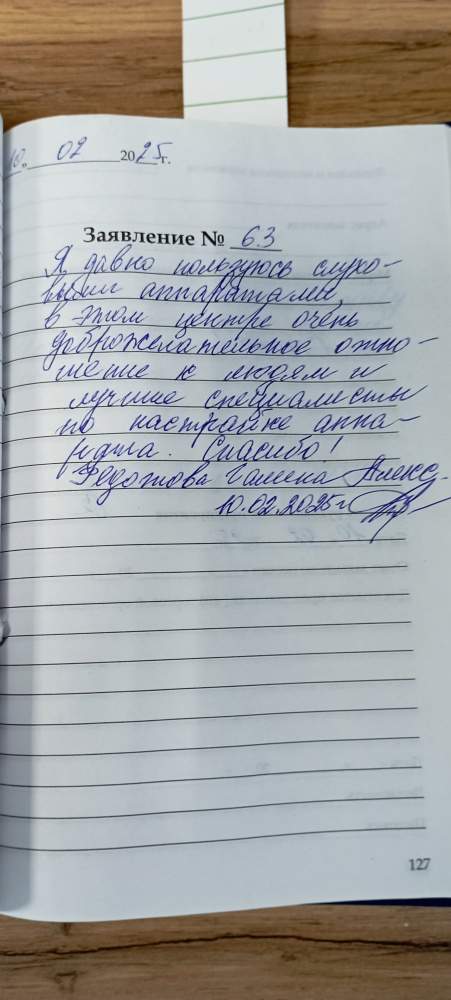 10. 02 2025 г.
Заявление № 63
Я давно пользуюсь слухо-
выми аппаратами,
в этом центре очень
доброжелательное отно-
шение к людям и
лучшие специалисты
по настрайке аппа-
рата. Спасибо!
Федотова Галина Алекс,
10.02.2025 г.
127